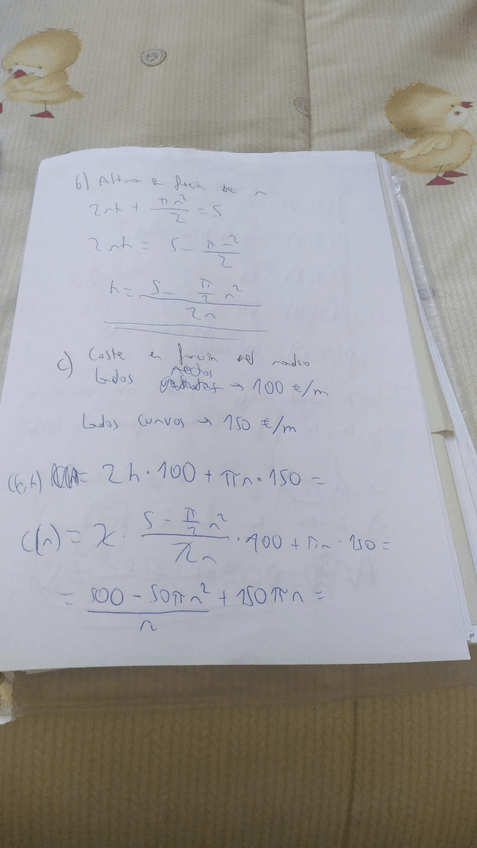 b) Altura en función de r
2rh + πr²/2 = 5
2rh = 5 - πr²/2
h = (5 - π/2 r²)/(2r)
c) Coste en función del radio
Lados rectos → 100 €/m
Lados curvos → 150 €/m
C(r,h) = 2h·100 + πr·150 =
C(r) = 2 · (5 - π/2 r²)/(2r) · 100 + πr · 150 =
= (500 - 50πr²)/r + 150πr =